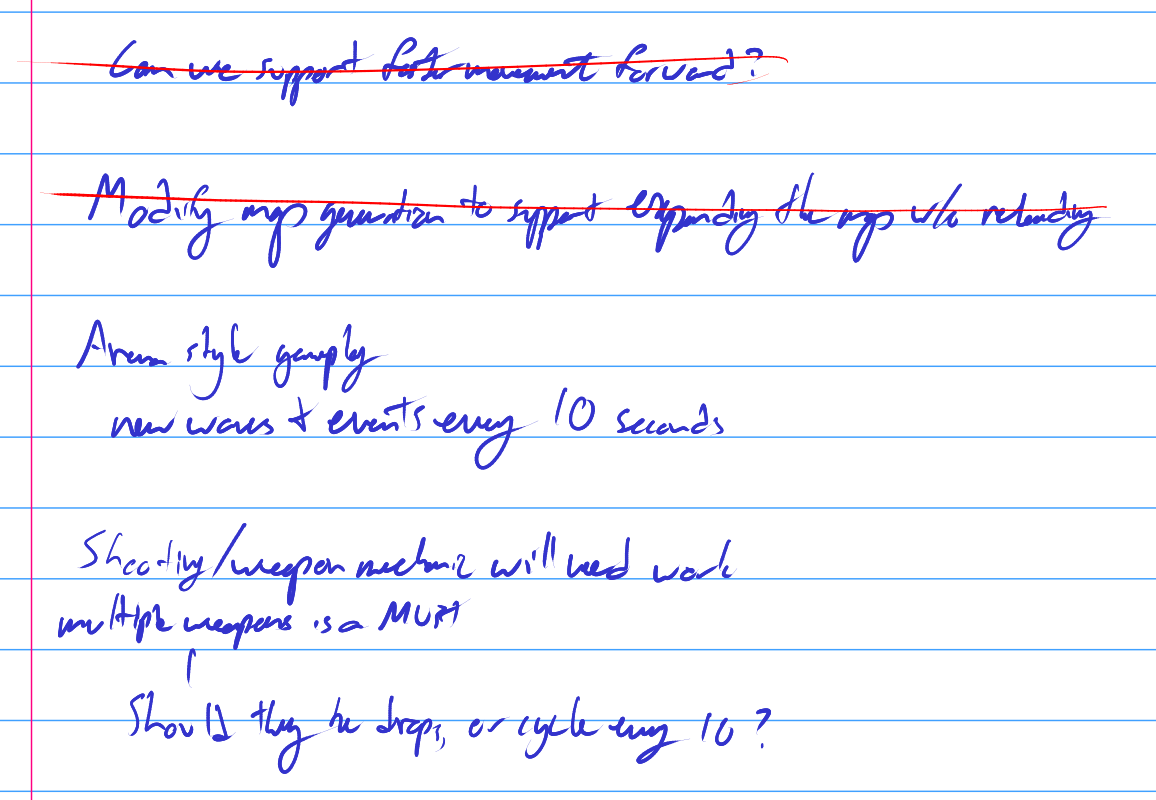 Can we support faster movement forward?
Modify map generation to support expanding the map w/o reloading
Arena style gameplay
new waves + events every 10 seconds
Shooting/weapon mechanic will need work
multiple weapons is a MUST
Should they be drops, or cycle every 10?